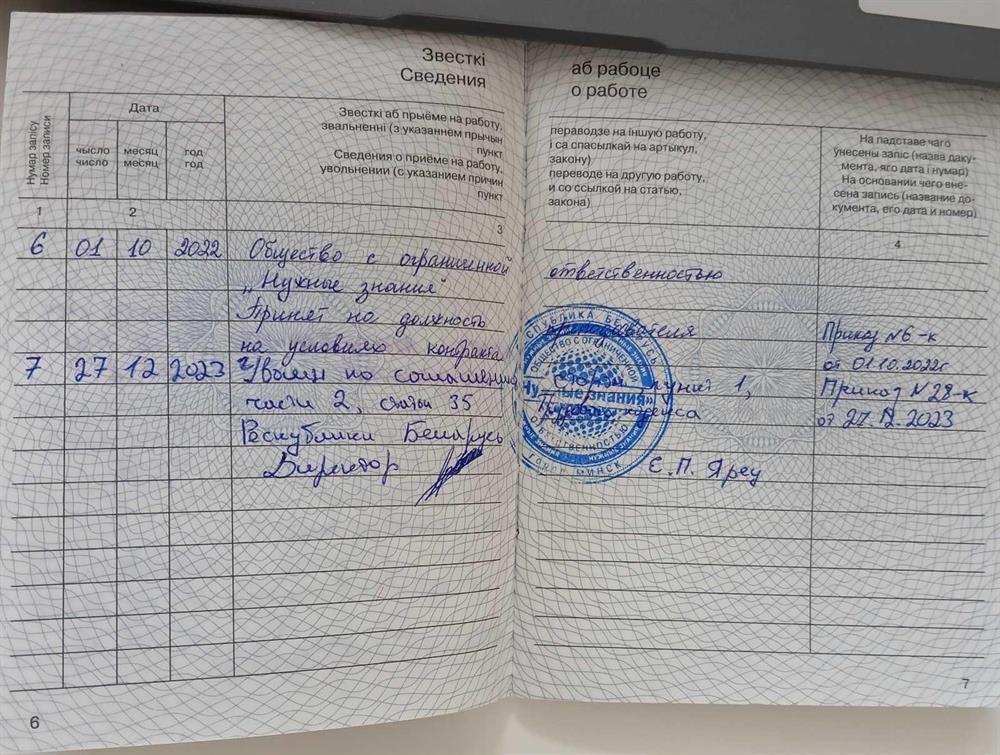 Звесткі
Сведения
Нумар запісу
Номер записи
Дата
чысло
число
месяц
месяц
год
год
Звесткі аб прыёме на работу,
звальненні (з указаннем прычын
пункт
Сведения о приёме на работу,
увольнении (с указанием причин
пункт
1
2
3
6 01 10 2022 Общество с ограниченной
„Нужные знания“
Принят на должность
на условиях контракта
7 27 12 2023 Уволен по соглашению
части 2, статьи 35
Республики Беларусь
Директор
6
аб рабоце
о работе
пераводзе на іншую работу,
і са спасылкай на артыкул,
закону)
переводе на другую работу,
и со ссылкой на статью,
закона)
На падставе чаго
ўнесены запіс (назва даку-
мента, яго дата і нумар)
На основании чего вне-
сена запись (название до-
кумента, его дата и номер)
4
ответственностью
Приказ №6-к
от 01.10.2022г
сторон, пункт 1,
Приказ №28-к
кодекса
от 27.12.2023
Е.П. Яред
РЕСПУБЛИКА БЕЛАРУСЬ
ОБЩЕСТВО С ОГРАНИЧЕННОЙ
«Нужные знания»
ОТВЕТСТВЕННОСТЬЮ
ГОРОД МИНСК
7